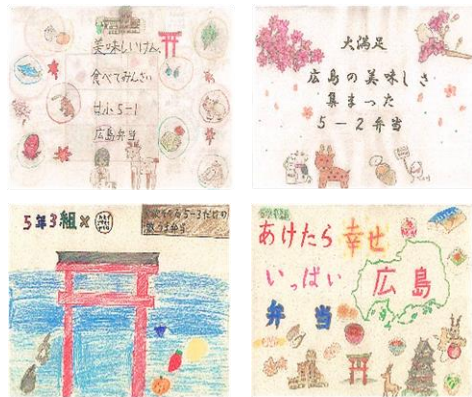 美味しいけん、
食べてみんさい
甘小5-1
広島弁当
大満足
広島の美味しさ
集まった
5-2弁当
5年3組×
あけたら幸せ
いっぱい
弁当
広島